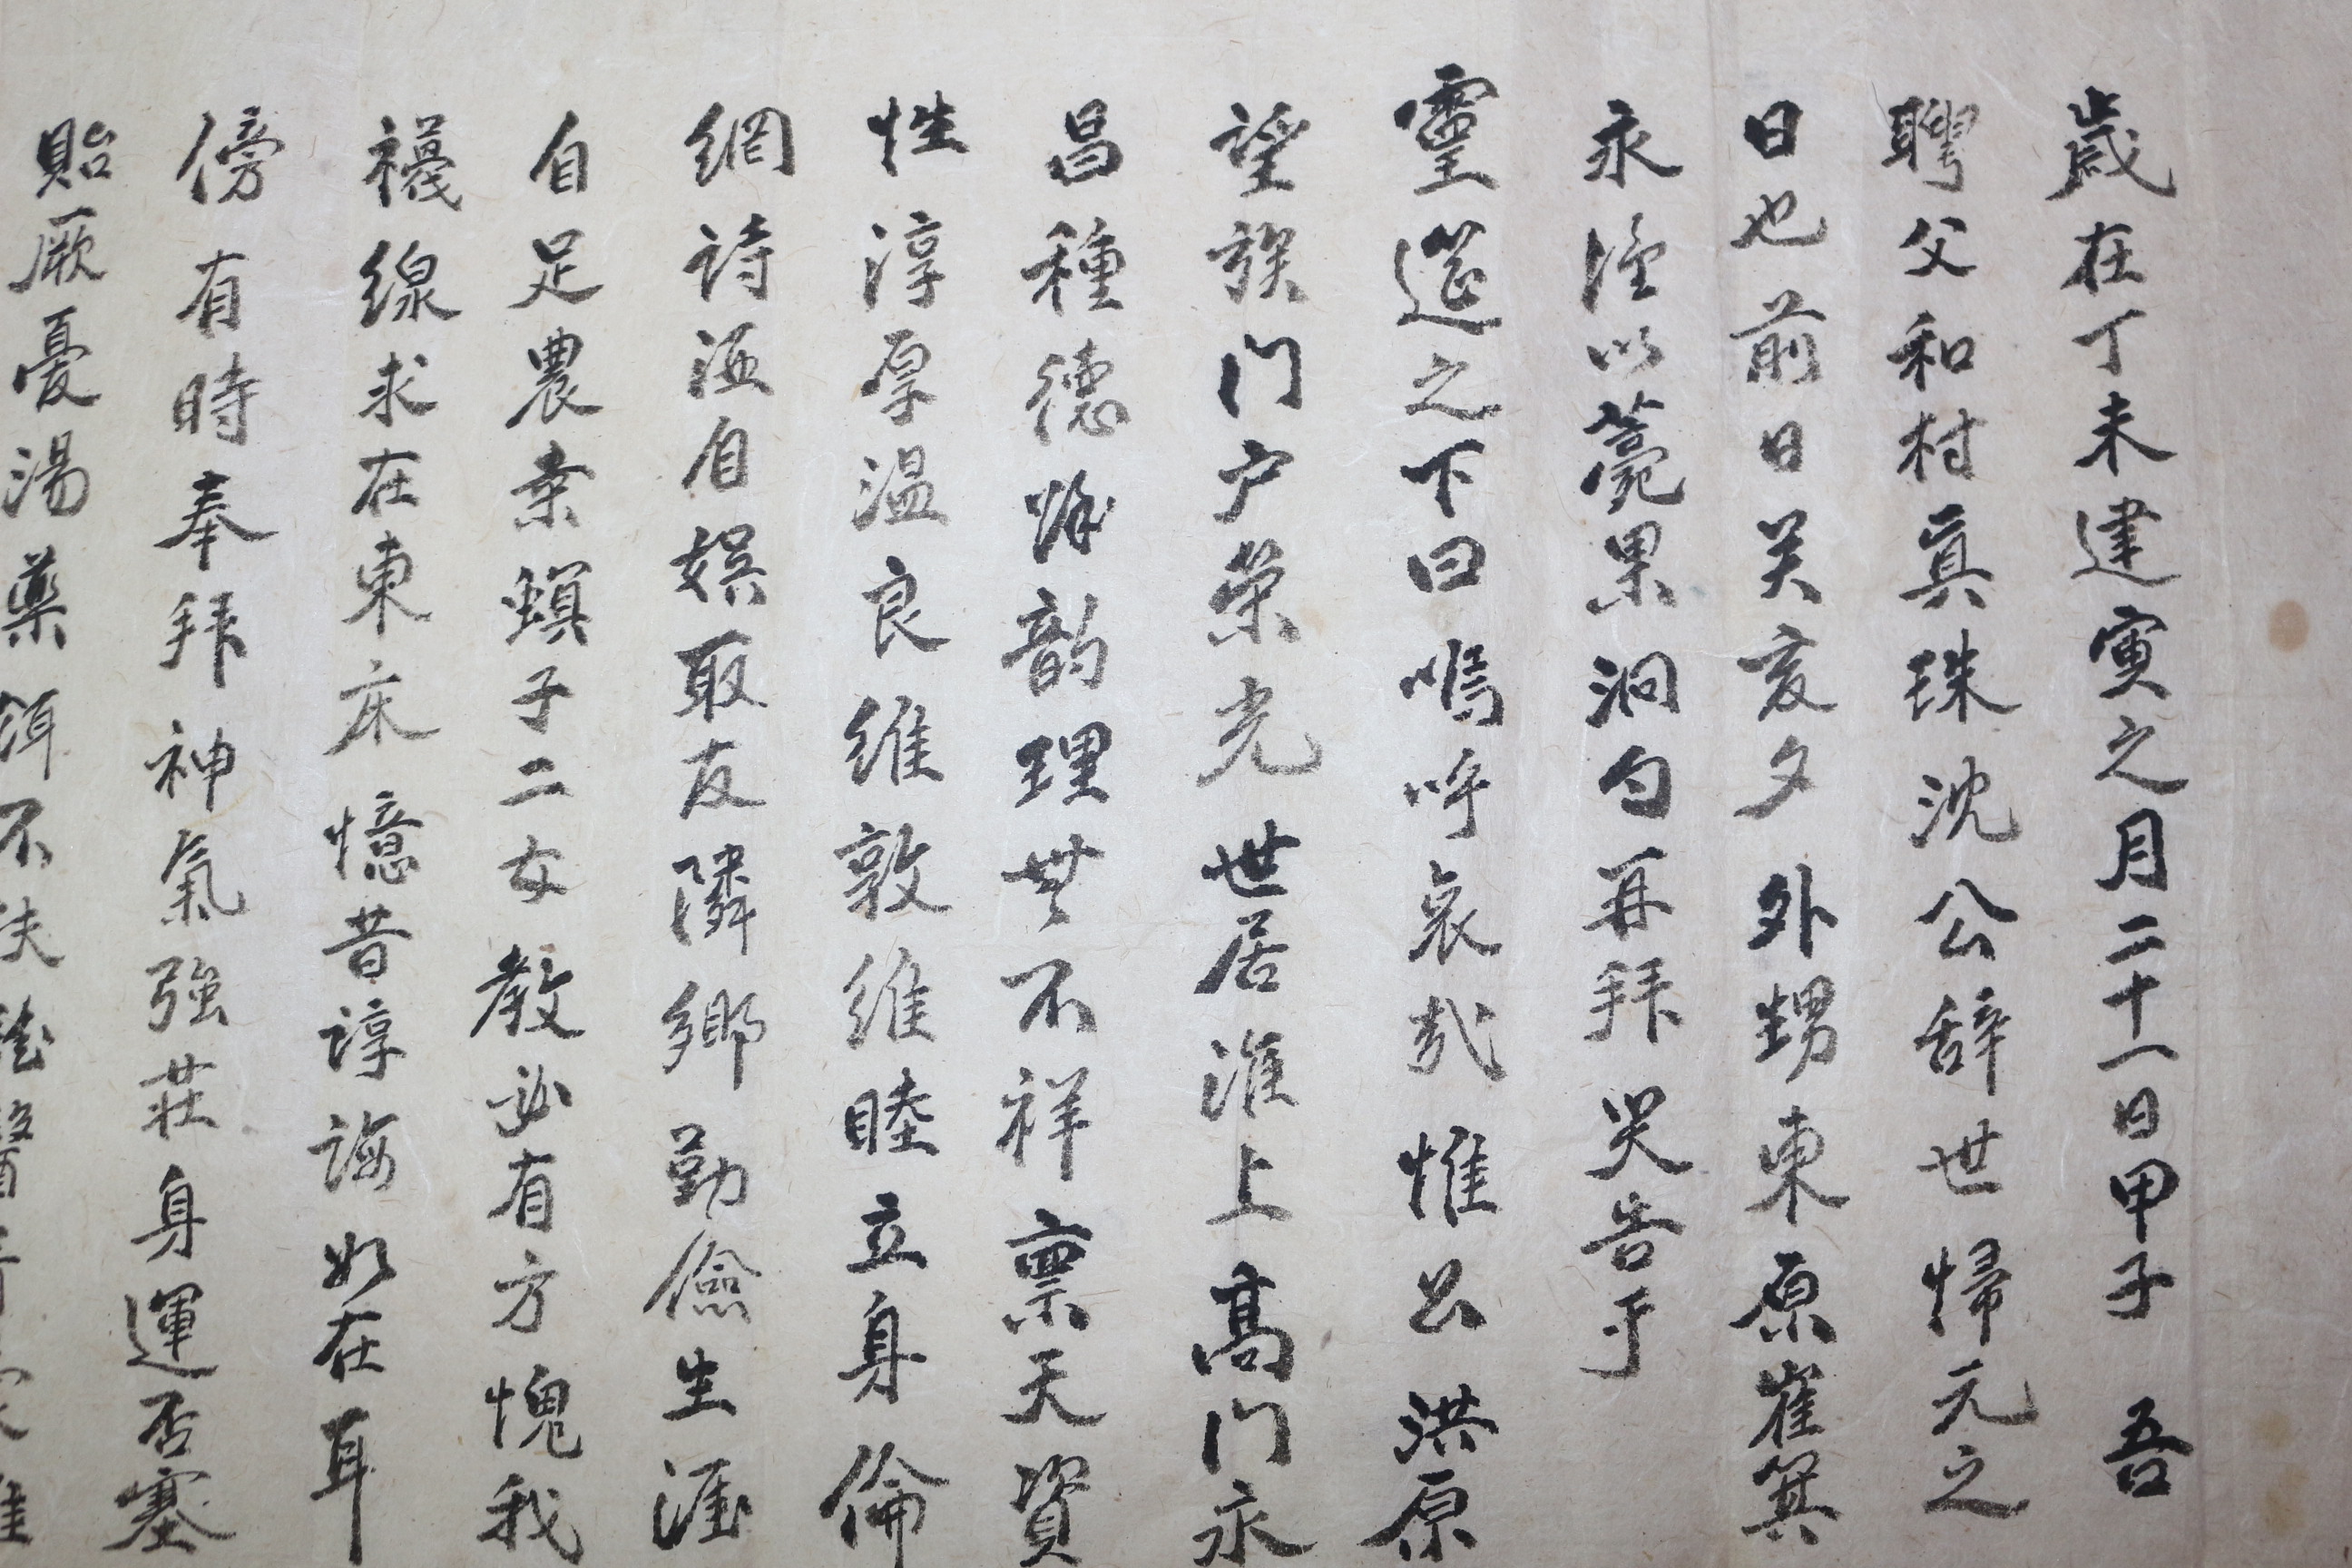 歲在丁未建寅之月二十一日甲子 吾
聘父和村眞珠沈公辞世歸元之
日也前日癸亥夕外甥東原崔箕
永謹以薨果洞勺再拜哭告于
靈筵之下曰嗚呼哀哉惟公洪原
望族門户榮光世居淮上高門永
昌種德 韵理世不祥禀天資
性淳厚温良維敦維睦立身倫
綱詩酒自娯取友隣鄉勤儉生涯
自足農桒 子二女教必有方愧我
襪線求在東床憶昔諄誨如在耳
傍有時奉拜神氣強莊身運否塞
貽厥憂湯藥餌不